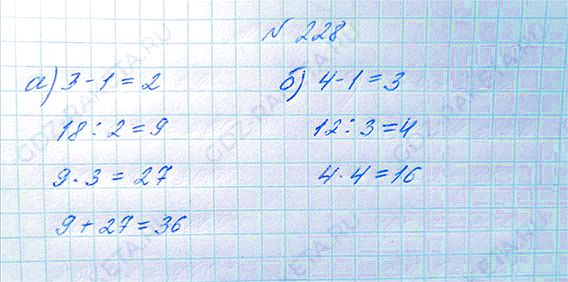 N 228
а) 3 - 1 = 2
18 : 2 = 9
9 · 3 = 27
9 + 27 = 36
б) 4 - 1 = 3
12 : 3 = 4
4 · 4 = 16
GDZ-RAKETA.RU